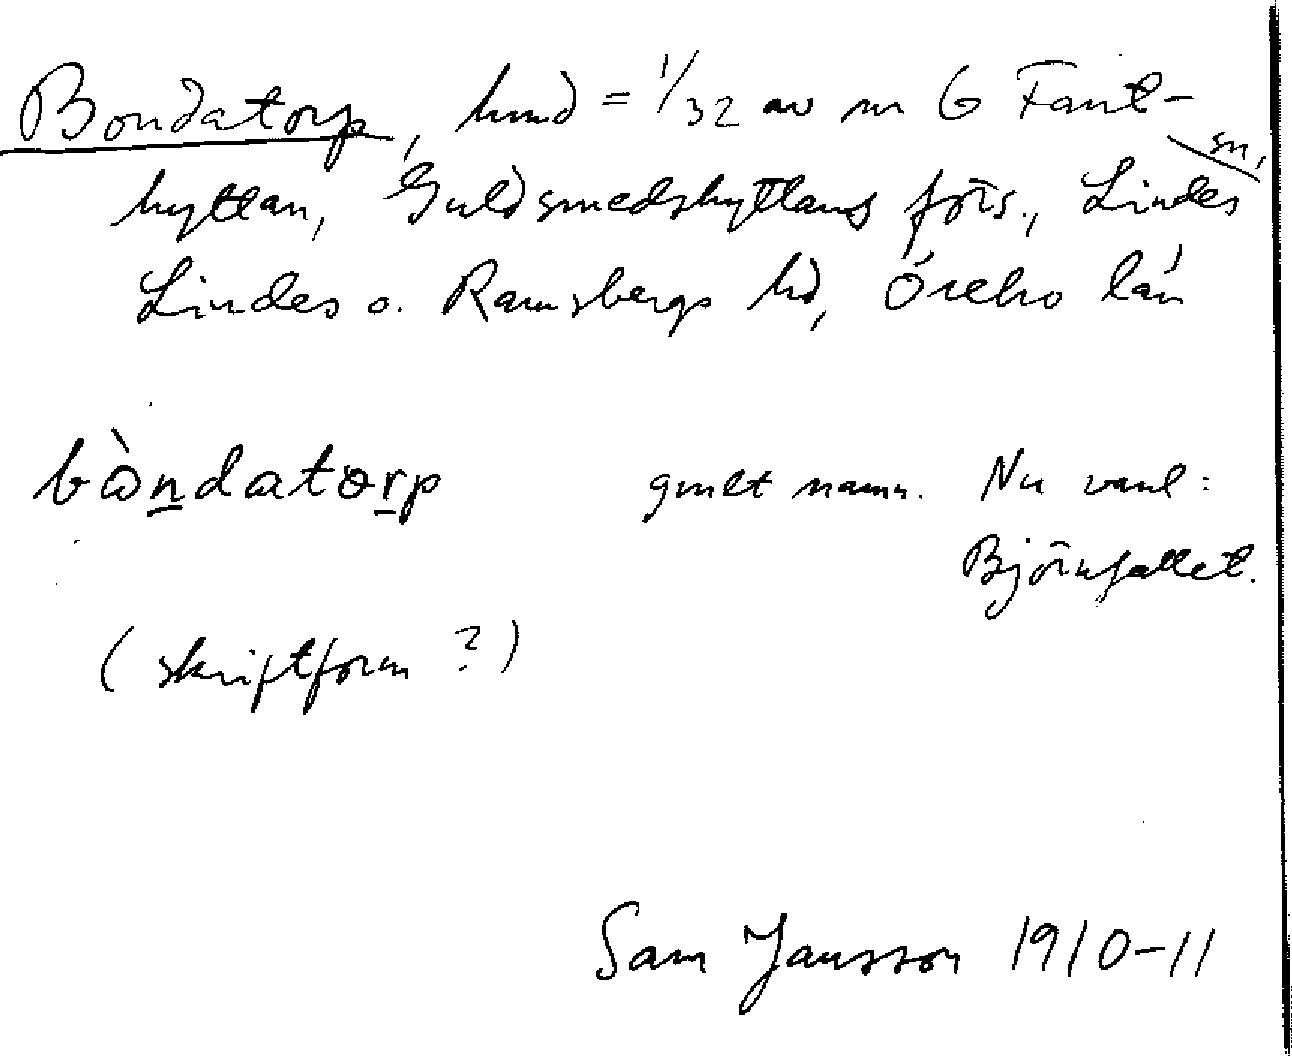 Bondatorp, hmd = 1/32 av nr 6 Fant-
hyttan, Guldsmedshyttans förs., Lindes sn,
Lindes o. Ramsbergs hd, Örebro län
bòndatorp gmlt namn. Nu vanl:
Björnfallet.
(skriftform ?)
Sam Jansson 1910-11